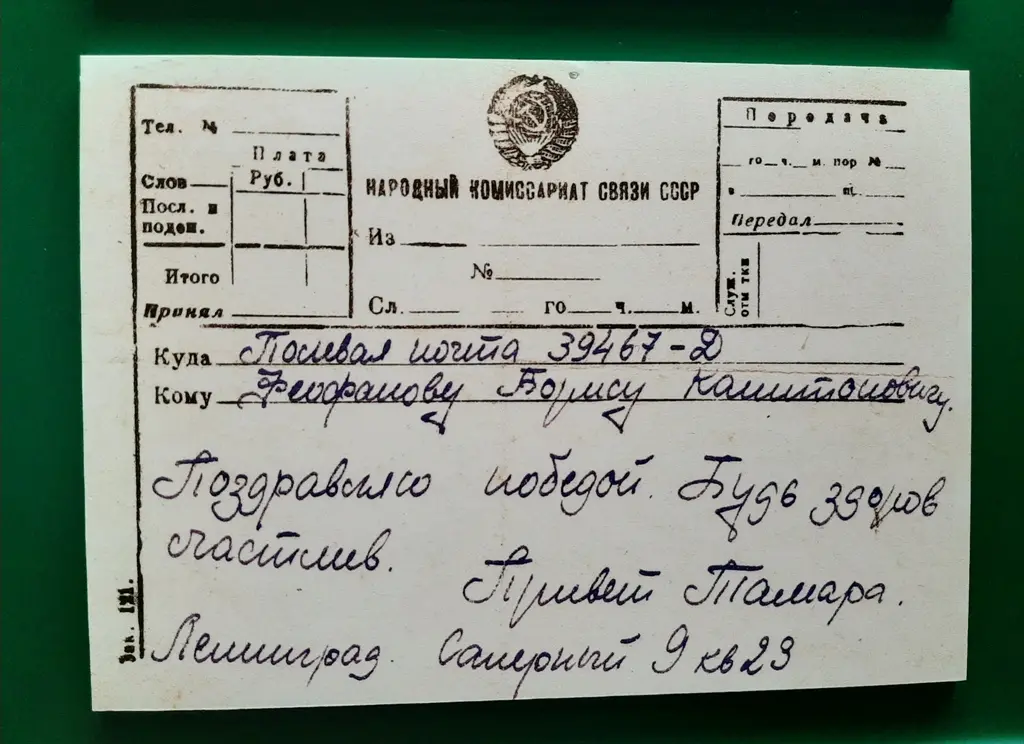 Тел. №
Плата
Слов
Руб.
Посл. и
подеп.
Итого
Принял
НАРОДНЫЙ КОМИССАРИАТ СВЯЗИ СССР
Из
№
Сл. го ч. м.
Передача
го ч. м. пор №
Передал
Служ.
отм тки
Куда Полевая почта 39467-Д
Кому Феофанову Борису Капитоновичу.
Поздравляю победой. Будь здоров
счастлив.
Привет Тамара.
Ленинград. Саперный 9 кв 23
Зак. 121.